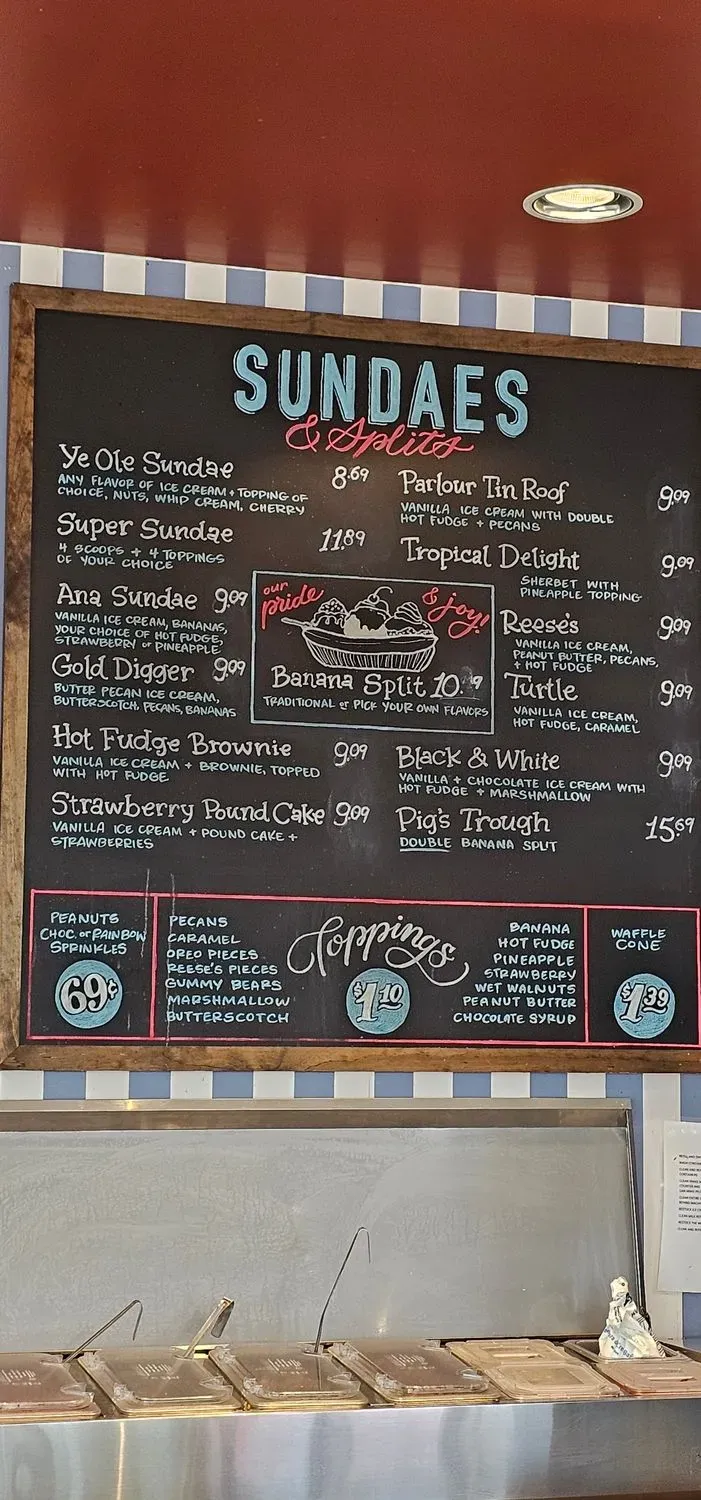 SUNDAES
& Splits
Ye Ole Sundae 8.69
ANY FLAVOR OF ICE CREAM + TOPPING OF
CHOICE, NUTS, WHIP CREAM, CHERRY
Super Sundae 11.89
4 SCOOPS + 4 TOPPINGS
OF YOUR CHOICE
Ana Sundae 9.09
VANILLA ICE CREAM, BANANAS,
YOUR CHOICE OF HOT FUDGE,
STRAWBERRY or PINEAPPLE
Gold Digger 9.09
BUTTER PECAN ICE CREAM,
BUTTERSCOTCH, PECANS, BANANAS
Hot Fudge Brownie 9.09
VANILLA ICE CREAM + BROWNIE, TOPPED
WITH HOT FUDGE
Strawberry Pound Cake 9.09
VANILLA ICE CREAM + POUND CAKE +
STRAWBERRIES
our
pride
& joy!
Banana Split
TRADITIONAL or PICK YOUR OWN FLAVORS
Parlour Tin Roof 9.09
VANILLA ICE CREAM WITH DOUBLE
HOT FUDGE + PECANS
Tropical Delight 9.09
SHERBET WITH
PINEAPPLE TOPPING
Reese's 9.09
VANILLA ICE CREAM,
PEANUT BUTTER, PECANS,
+ HOT FUDGE
Turtle 9.09
VANILLA ICE CREAM,
HOT FUDGE, CARAMEL
Black & White 9.09
VANILLA + CHOCOLATE ICE CREAM WITH
HOT FUDGE + MARSHMALLOW
Pig's Trough 15.69
DOUBLE BANANA SPLIT
PEANUTS
CHOC. or RAINBOW
SPRINKLES
69¢
PECANS
CARAMEL
OREO PIECES
REESE'S PIECES
GUMMY BEARS
MARSHMALLOW
BUTTERSCOTCH
Toppings
$1.10
BANANA
HOT FUDGE
PINEAPPLE
STRAWBERRY
WET WALNUTS
PEANUT BUTTER
CHOCOLATE SYRUP
WAFFLE
CONE
$1.39